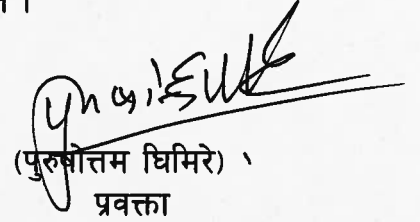 (पुरुषोत्तम घिमिरे)
प्रवक्ता